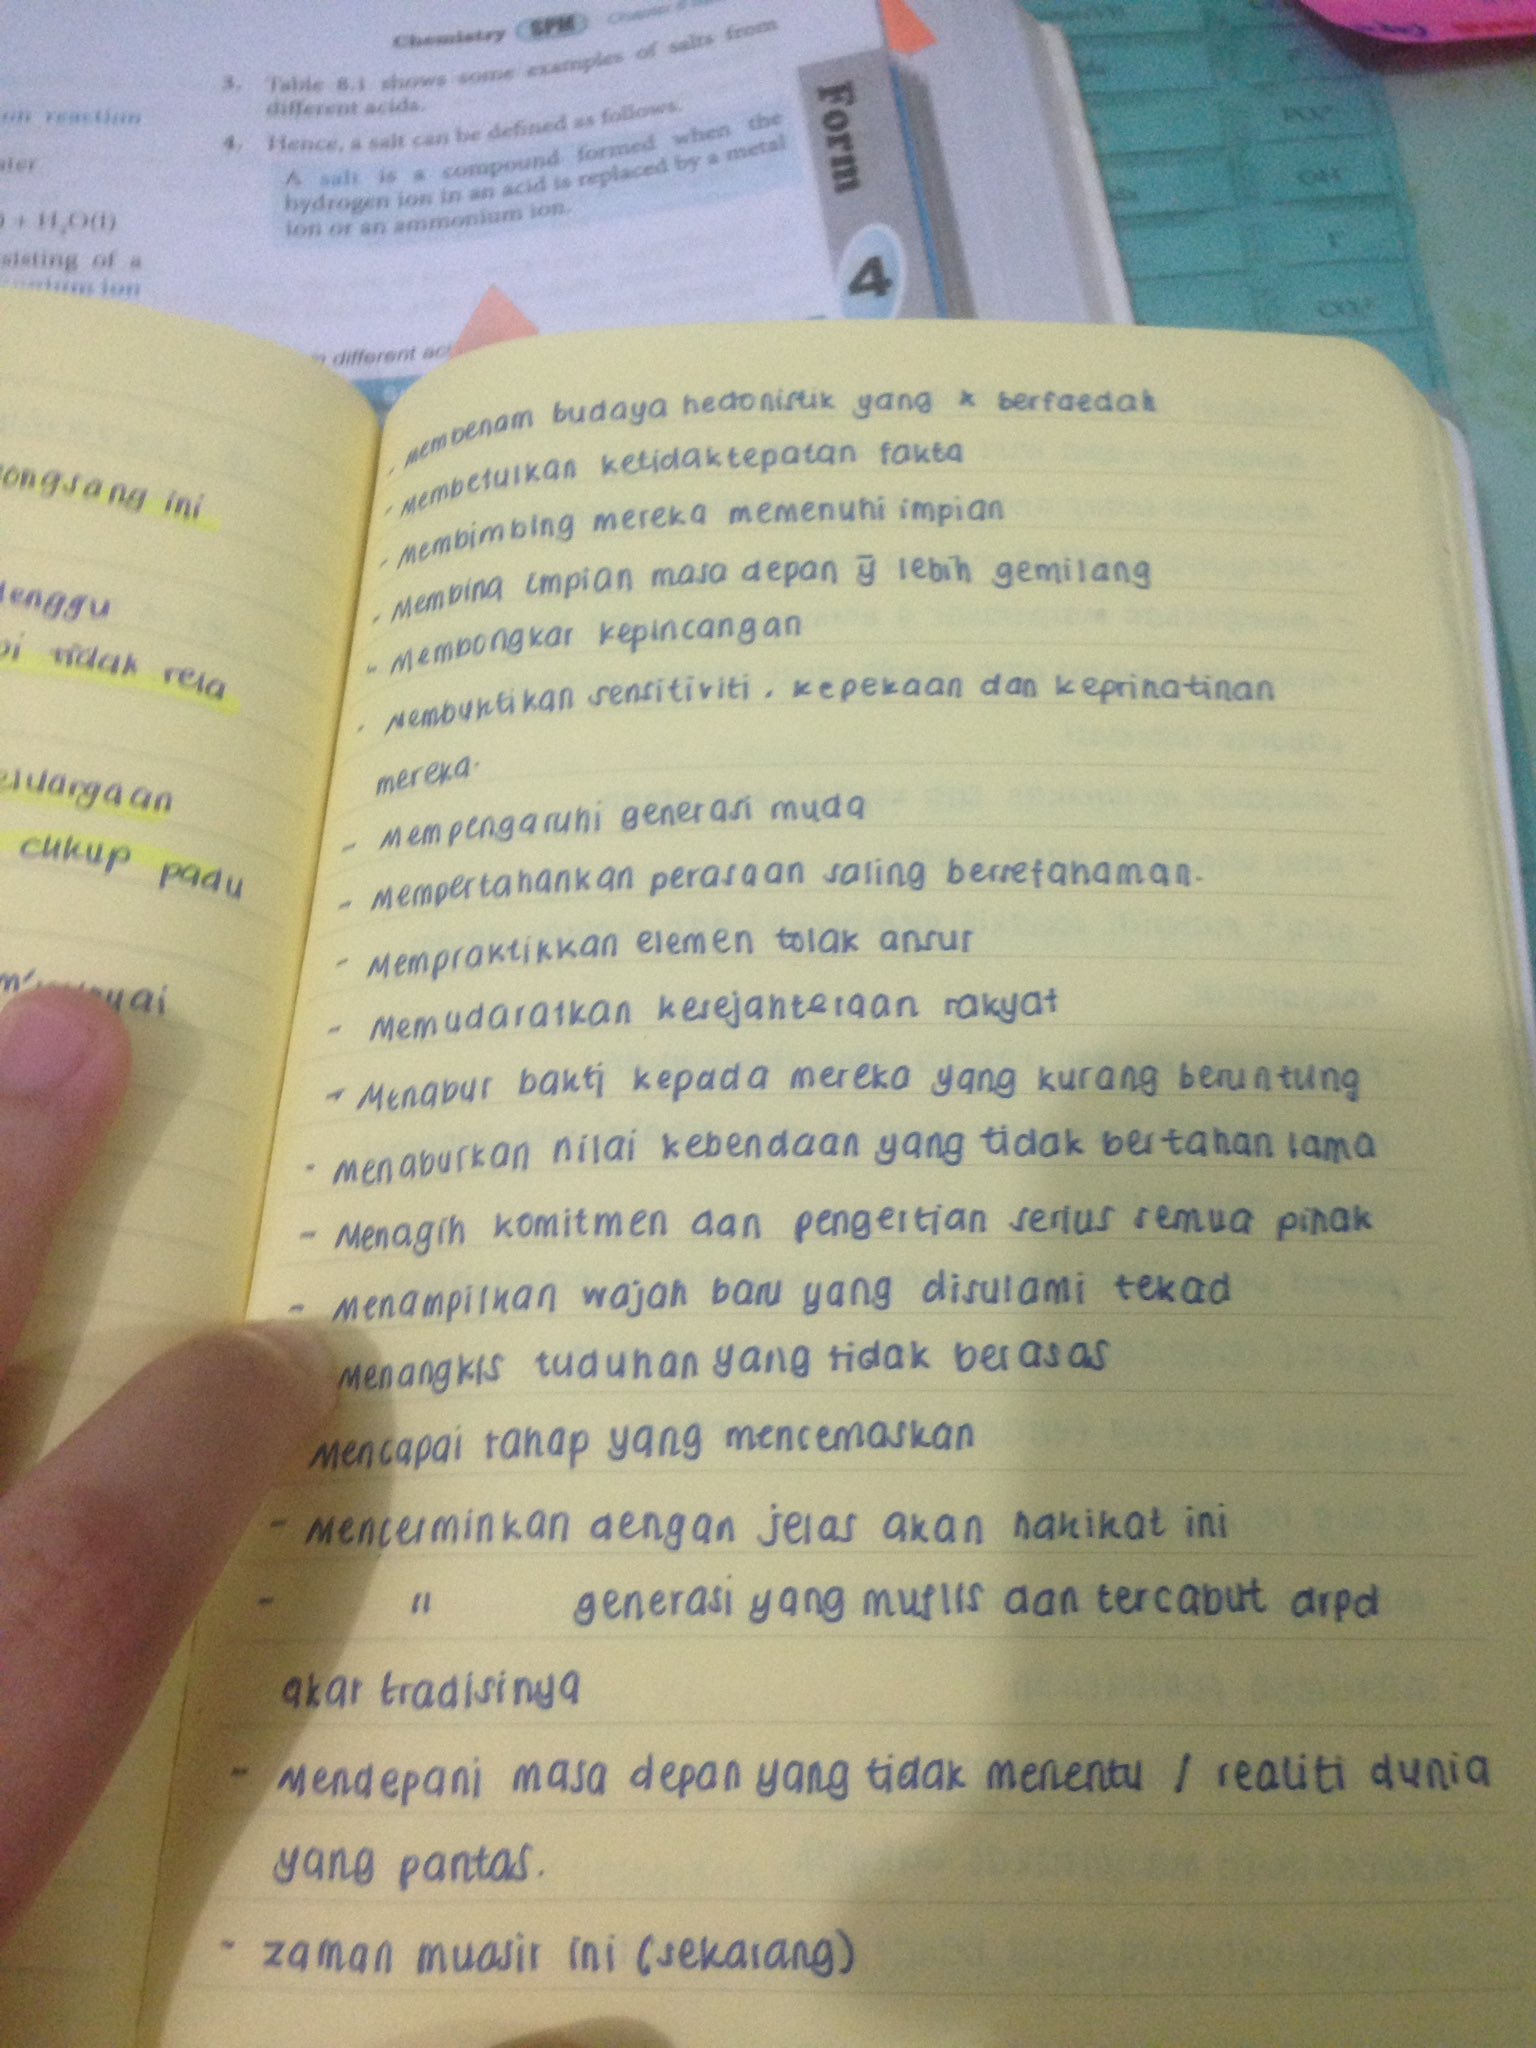 Chemistry SPM
3. Table 8.1 shows some examples of salts from
different acids.
4. Hence, a salt can be defined as follows.
A salt is a compound formed when the
hydrogen ion in an acid is replaced by a metal
ion or an ammonium ion.
Form
4
reaction
+ H₂O(l)
sisting of a
ion
different
ini
tidak rela
cukup padu
- Membenam budaya hedonistik yang x berfaedah
- Membetulkan ketidaktepatan fakta
- Membimbing mereka memenuhi impian
- Membina impian masa depan ȳ lebih gemilang
- Membongkar kepincangan
- Membuktikan sensitiviti, kepekaan dan keprihatinan
mereka.
- Mempengaruhi generasi muda
- Mempertahankan perasaan saling bersefahaman.
- Mempraktikkan elemen tolak ansur
- Memudaratkan kesejahteraan rakyat
- Menabur bakti kepada mereka yang kurang beruntung
- Menaburkan nilai kebendaan yang tidak bertahan lama
- Menagih komitmen dan pengertian serius semua pihak
- Menampilkan wajah baru yang disulami tekad
Menangkis tuduhan yang tidak berasas
Mencapai tahap yang mencemaskan
- Mencerminkan dengan jelas akan hakikat ini
- " generasi yang muflis dan tercabut drpd
akar tradisinya
- Mendepani masa depan yang tidak menentu / realiti dunia
yang pantas.
- zaman muasir ini (sekarang)